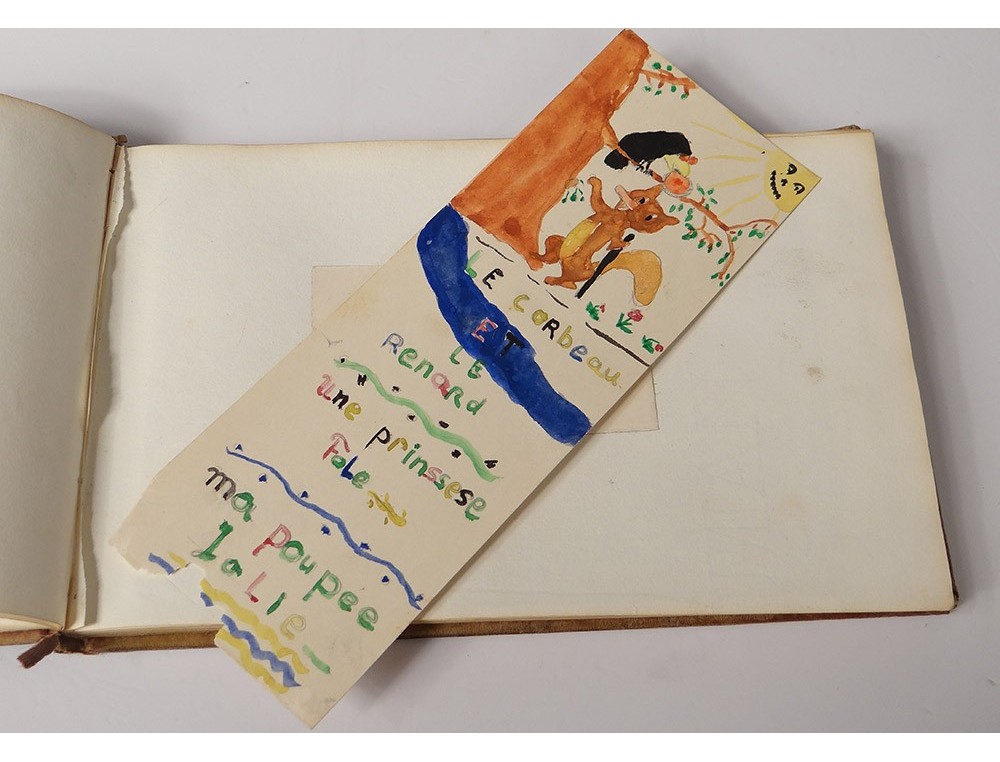 LE corbeau
ET
LE
Renard
une prinssese
Fole
ma poupée
JaLIe